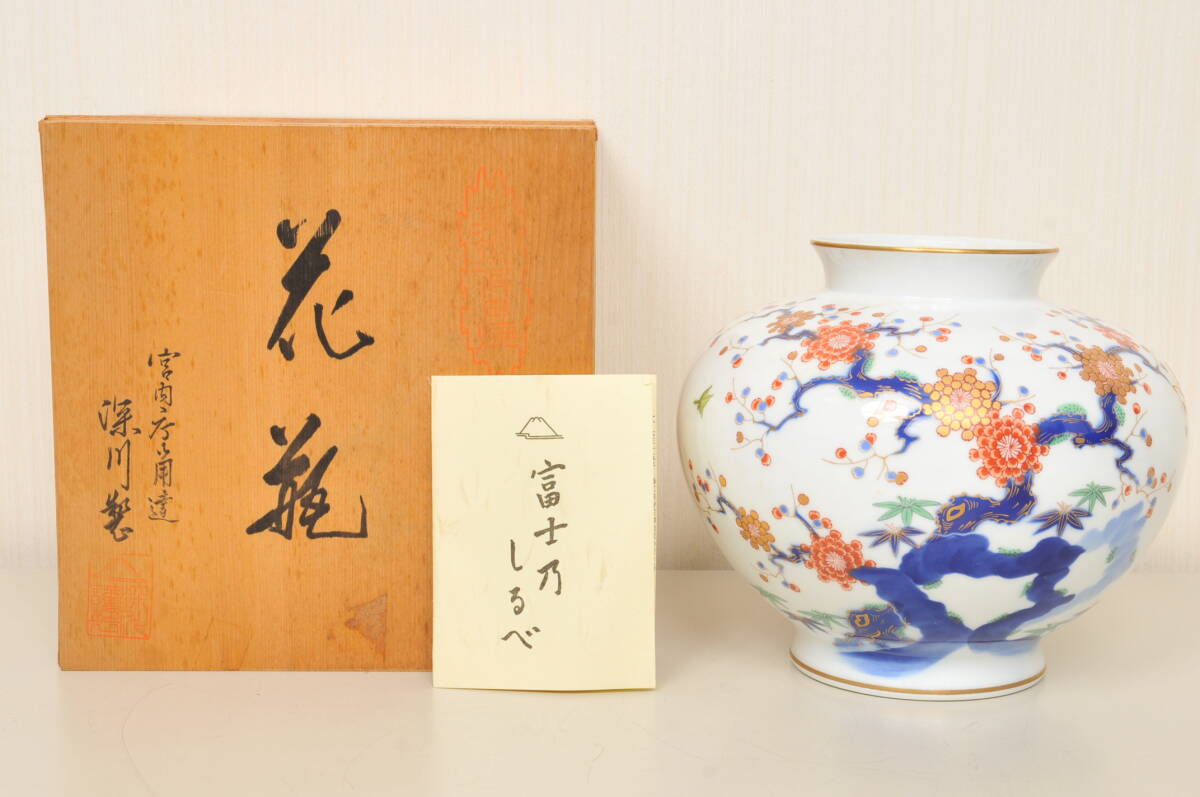 花瓶
宮内庁御用達
深川製
富士乃
しるべ